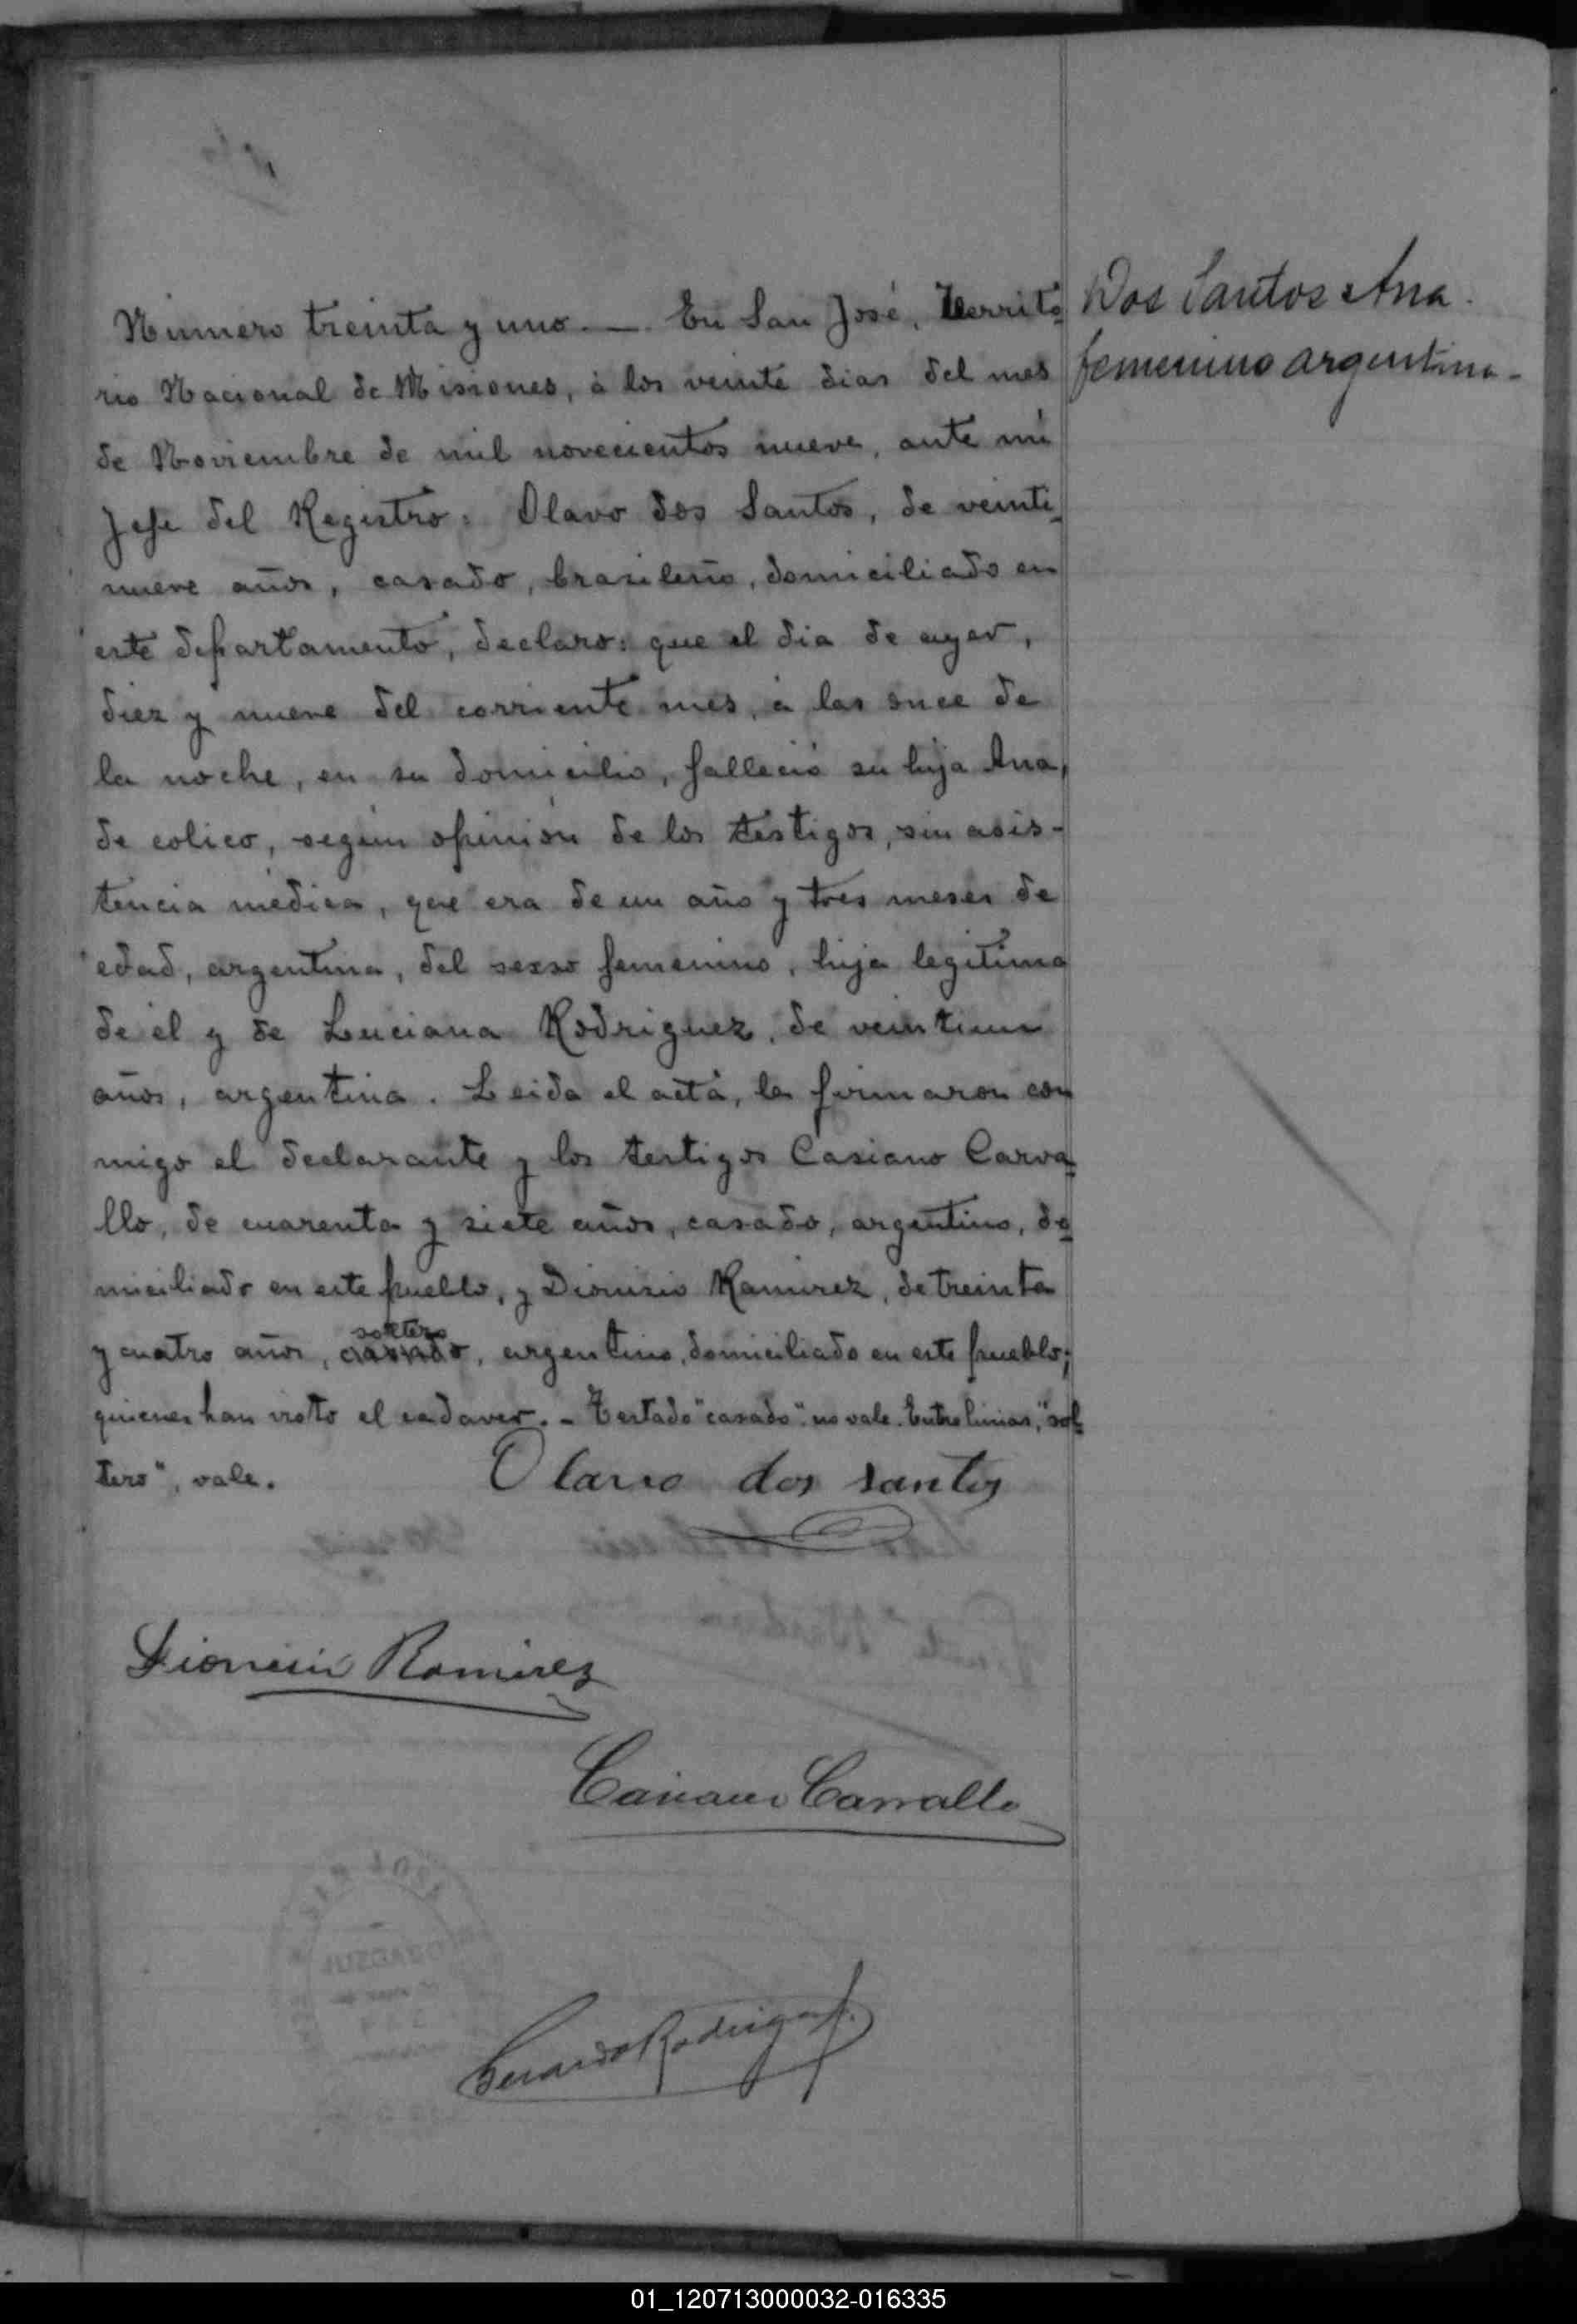 Dos Santos Ana.
femenino argentina-
Número treinta y uno.— En San José, Territo
rio Nacional de Misiones, á los veinte dias del mes
de Noviembre de mil novecientos nueve, ante mi
Jefe del Registro: Olavo dos Santos, de veinti
nueve años, casado, brasileño, domiciliado en
este departamento, declaro: que el dia de ayer,
diez y nueve del corriente mes, á las once de
la noche, en su domicilio, falleció su hija Ana,
de colico, según opinión de los testigos, sin asis-
tencia médica, que era de un año y tres meses de
edad, argentina, del sexso femenino, hija legitima
de él y de Luciana Rodriguez, de veintiun
años, argentina. Leida el acta, la firmaron con
migo el declarante y los testigos Casiano Carva
llo, de cuarenta y siete años, casado, argentino, do
miciliado en este pueblo, y Dionisio Ramirez, de treinta
y cuatro años, casado soltero, argentino, domiciliado en este pueblo;
quienes han visto el cadaver.- Testado "casado": no vale. Entre linias, "sol
tero", vale.
Olavo dos santos
Dionicio Ramirez
Casiano Carvallo
Rodrigue
01_120713000032-016335